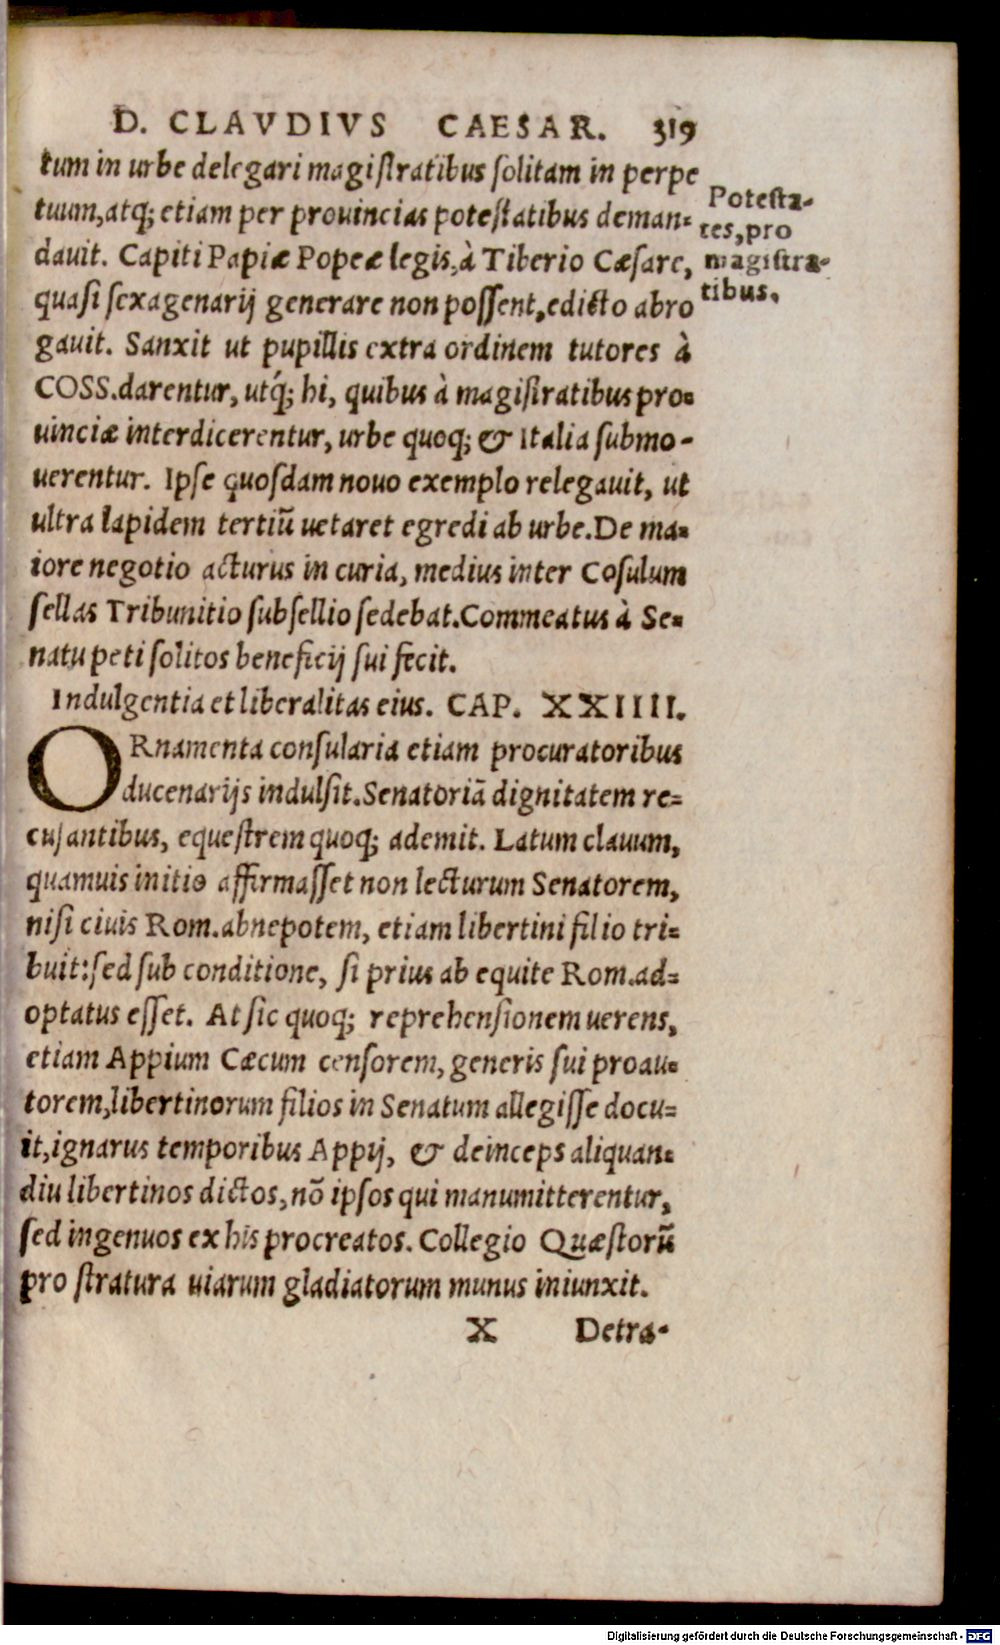 D. CLAVDIVS CAESAR. 319
tum in urbe delegari magistratibus solitam in perpe
tuum, atq; etiam per prouincias potestatibus deman-
dauit. Capiti Papiæ Popeæ legis, à Tiberio Cæsare,
quasi sexagenarij generare non possent, edicto abro
gauit. Sanxit ut pupillis extra ordinem tutores à
COSS. darentur, utq́; hi, quibus à magistratibus pro-
uinciæ interdicerentur, urbe quoq; & Italia submo-
uerentur. Ipse quosdam nouo exemplo relegauit, ut
ultra lapidem tertiũ uetaret egredi ab urbe. De ma-
iore negotio acturus in curia, medius inter Cosulum
sellas Tribunitio subsellio sedebat. Commeatus à Se-
natu peti solitos beneficij sui fecit.
Potesta-
tes, pro
magistra-
tibus.
Indulgentia et liberalitas eius. CAP. XXIIII.
ORnamenta consularia etiam procuratoribus
ducenarijs indulsit. Senatoriã dignitatem re-
cusantibus, equestrem quoq; ademit. Latum clauum,
quamuis initio affirmasset non lecturum Senatorem,
nisi ciuis Rom. abnepotem, etiam libertini filio tri-
buit: sed sub conditione, si prius ab equite Rom. ad-
optatus esset. At sic quoq; reprehensionem uerens,
etiam Appium Cæcum censorem, generis sui proau-
torem, libertinorum filios in Senatum allegisse docu-
it, ignarus temporibus Appij, & deinceps aliquan-
diu libertinos dictos, nõ ipsos qui manumitterentur,
sed ingenuos ex his procreatos. Collegio Quæstorũ
pro stratura uiarum gladiatorum munus iniunxit.
X Detra-
Digitalisierung gefördert durch die Deutsche Forschungsgemeinschaft - DFG